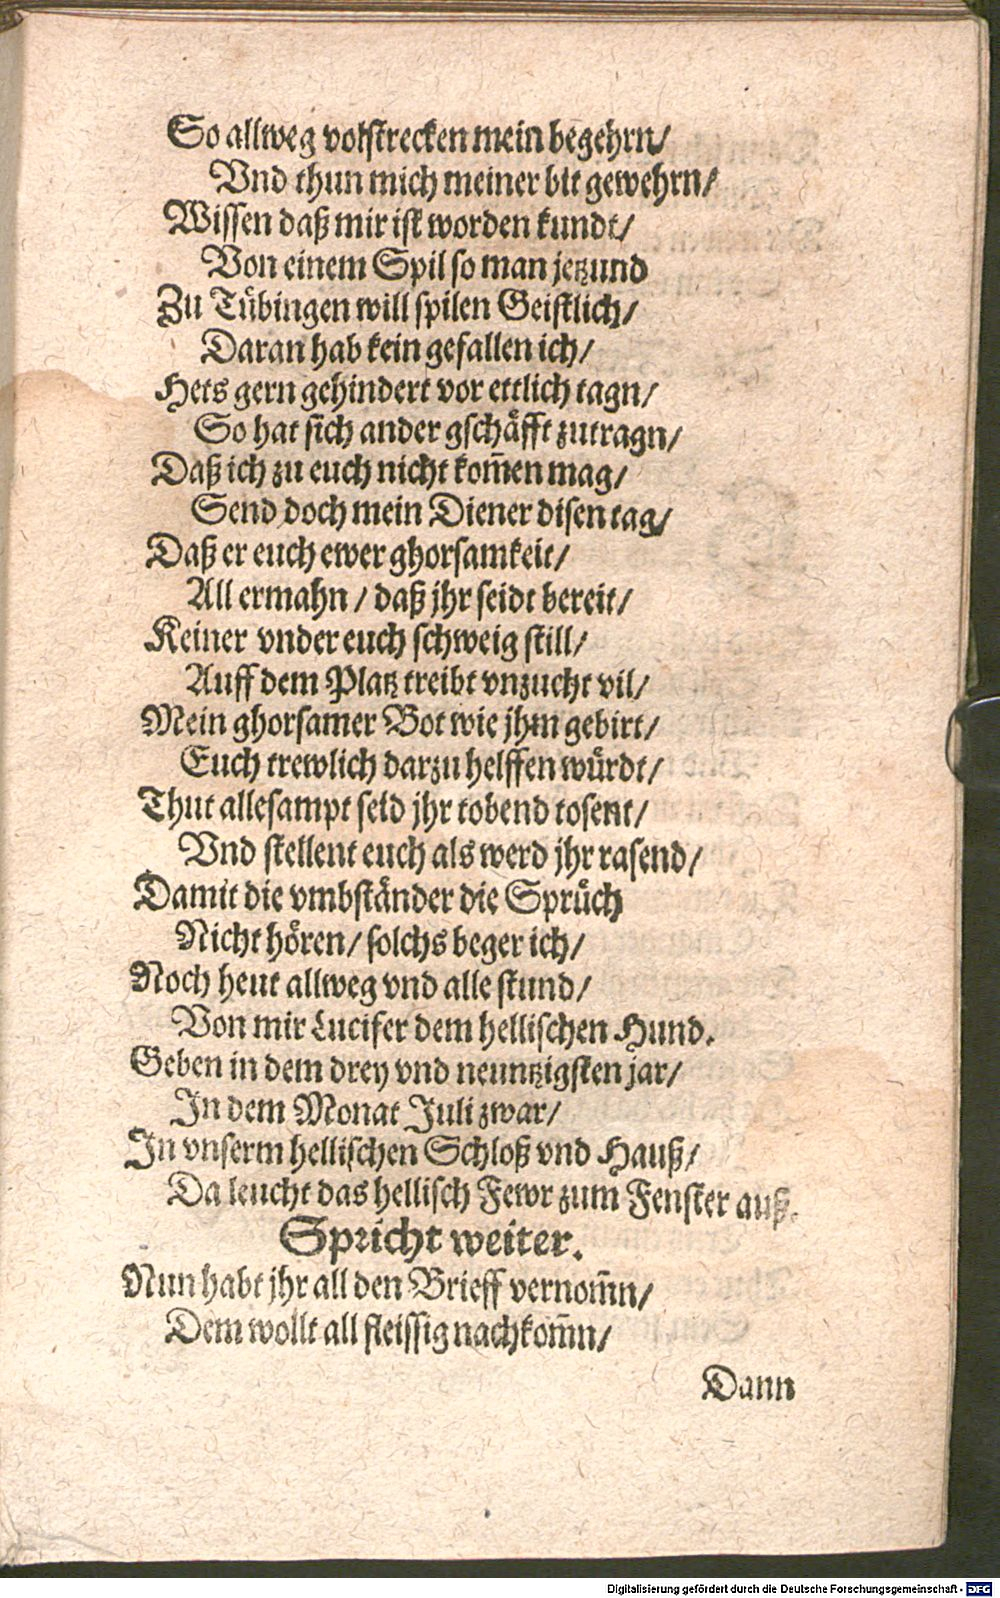 So allweg volstrecken mein begehrn/
Vnd thun mich meiner bit gewehrn/
Wissen daß mir ist worden kundt/
Von einem Spil so man jetzund
Zu Tübingen will spilen Geistlich/
Daran hab kein gefallen ich/
Hets gern gehindert vor ettlich tagn/
So hat sich ander gschäfft zutragn/
Daß ich zu euch nicht kom̃en mag/
Send doch mein Diener disen tag/
Daß er euch ewer ghorsamkeit/
All ermahn / daß jhr seidt bereit/
Keiner vnder euch schweig still/
Auff dem Platz treibt vnzucht vil/
Mein ghorsamer Bot wie jhm gebirt/
Euch trewlich darzu helffen würdt/
Thut allesampt seid jhr tobend tosent/
Vnd stellent euch als werd jhr rasend/
Damit die vmbständer die Sprüch
Nicht hören/ solchs beger ich/
Noch heut allweg vnd alle stund/
Von mir Lucifer dem hellischen Hund.
Geben in dem drey vnd neuntzigsten jar/
In dem Monat Juli zwar/
In vnserm hellischen Schloß vnd Hauß/
Da leucht das hellisch Fewr zum Fenster auß.
Spricht weiter.
Nun habt jhr all den Brieff vernom̃n/
Dem wollt all fleissig nachkom̃n/
Dann
Digitalisierung gefördert durch die Deutsche Forschungsgemeinschaft - DFG